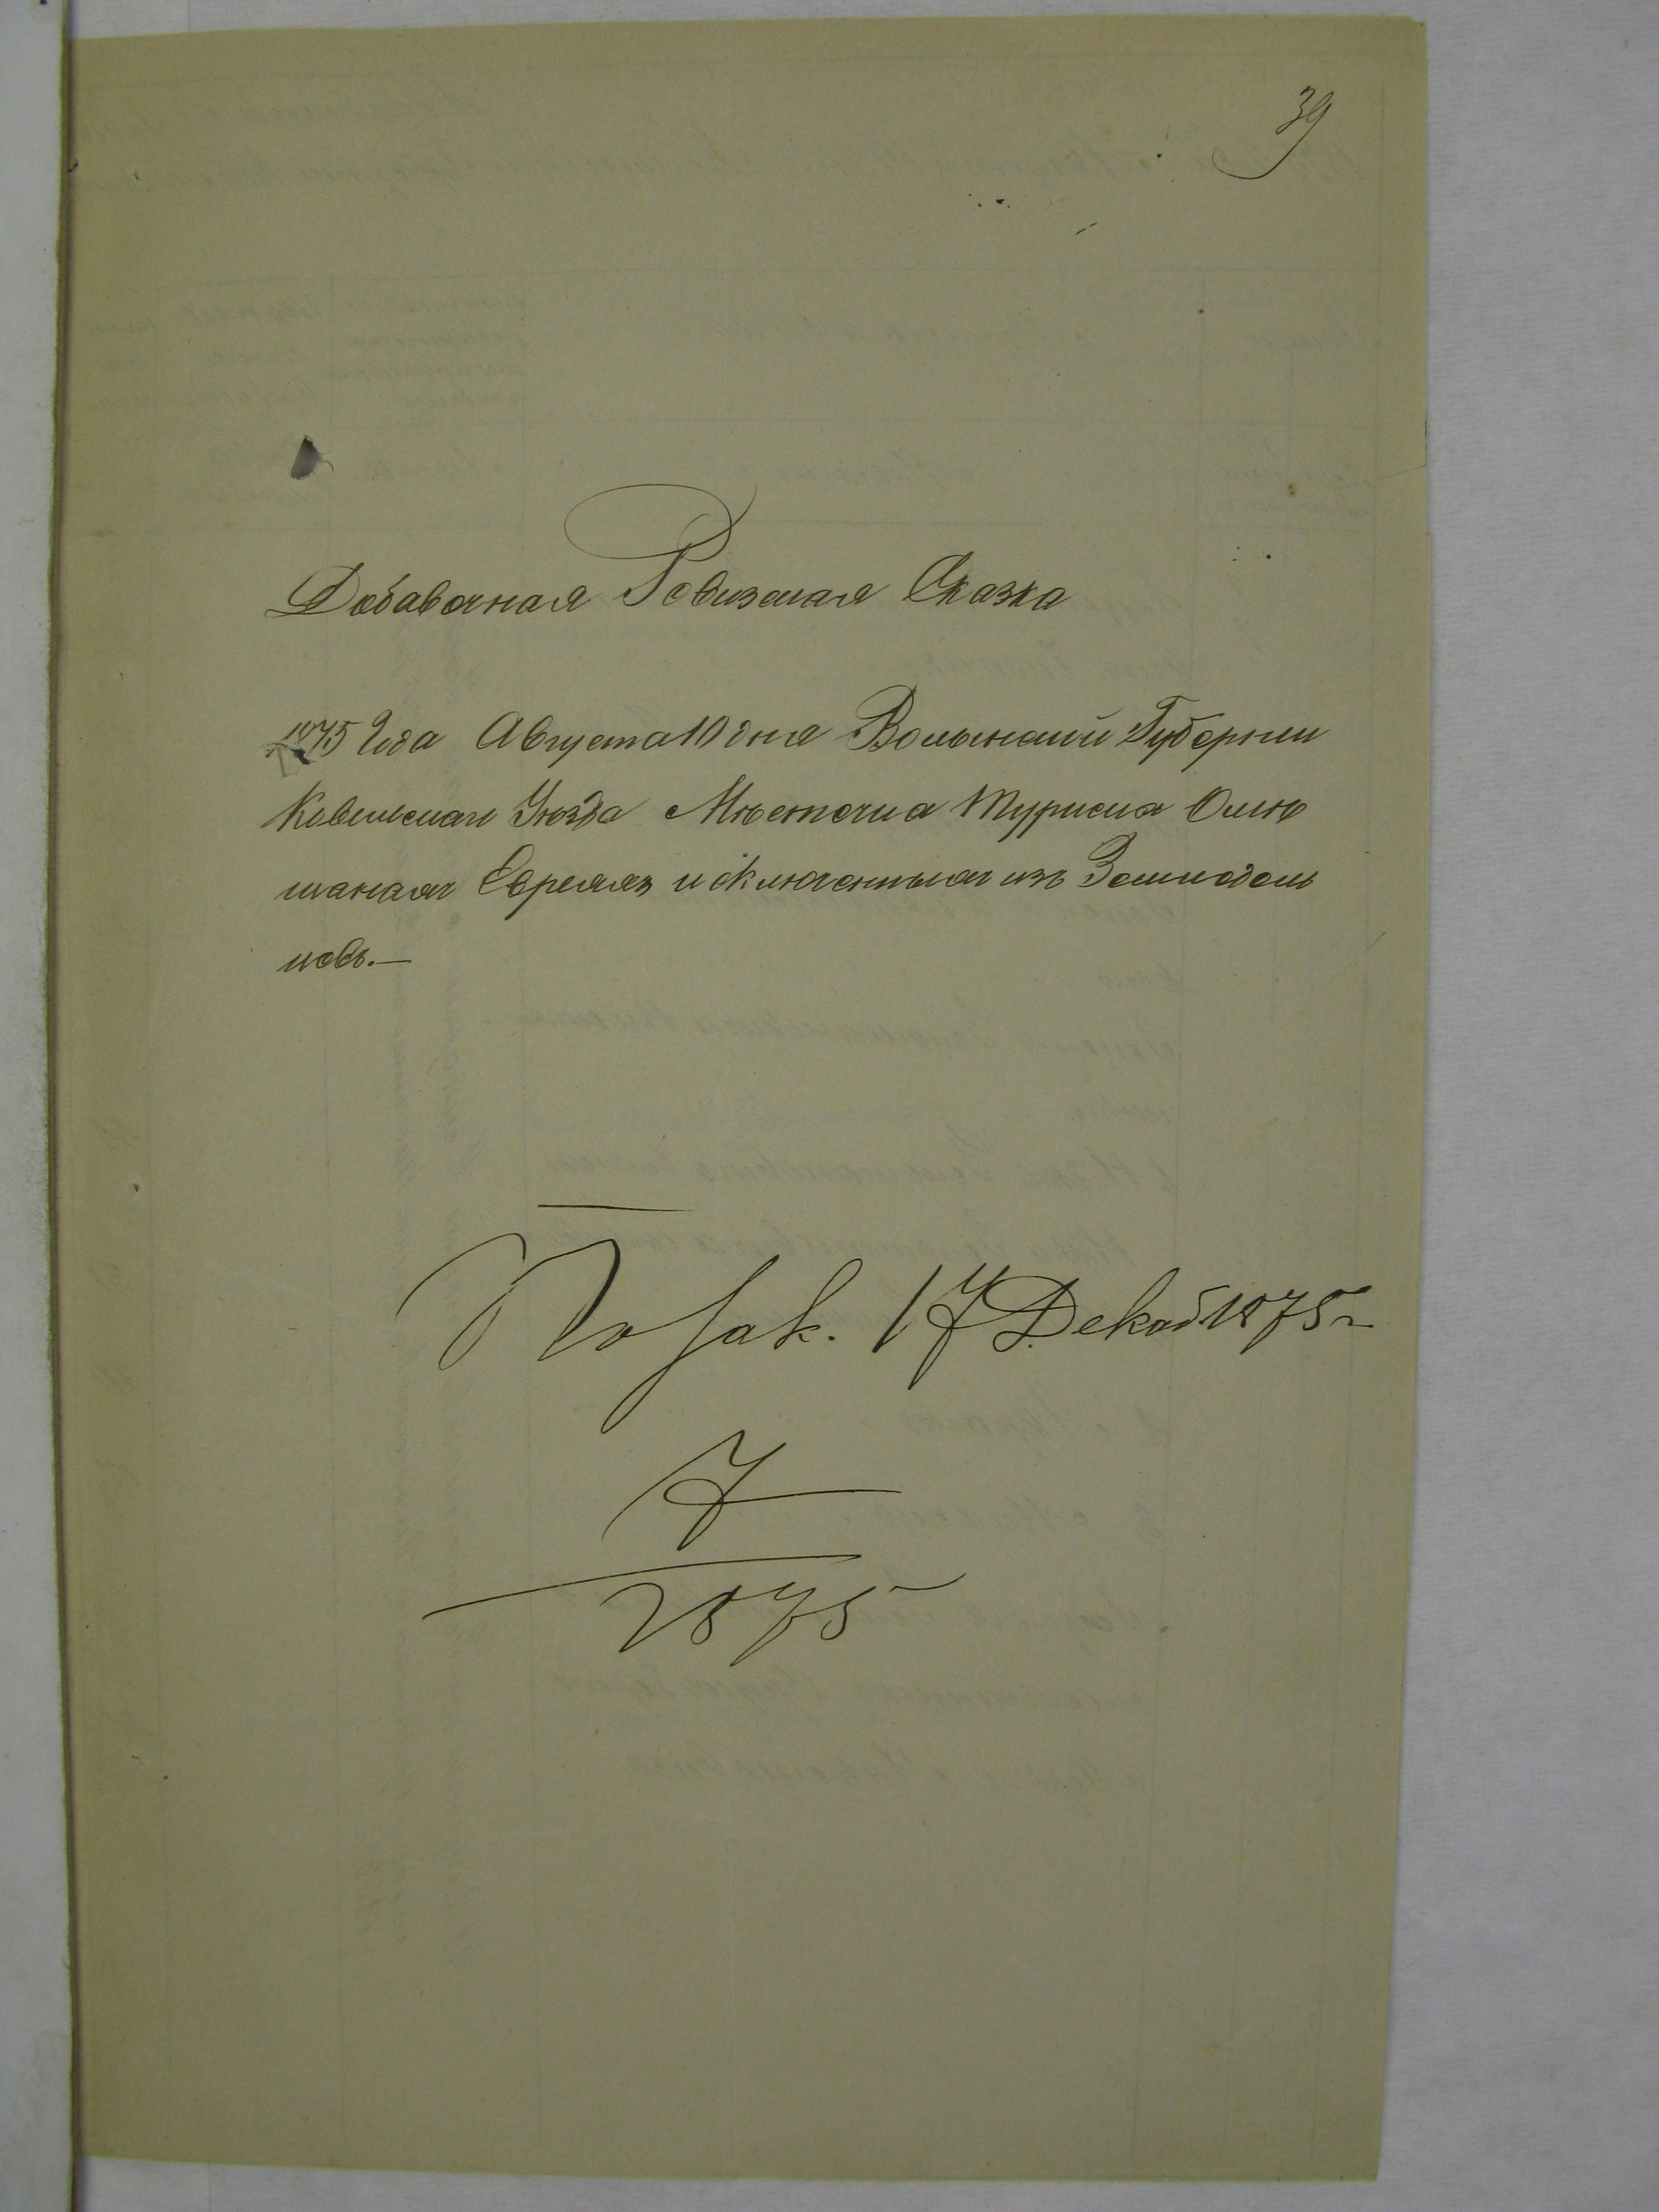 39
Добавочная Ревизская Сказка
1875 Года Августа 10 дня Волынской Губернии
Ковельскаго Уѣзда Мѣстечка Туриска
щанам Евреям исключенным из Земледель
цовъ.—
17 Декаб 1875 г
7
1875